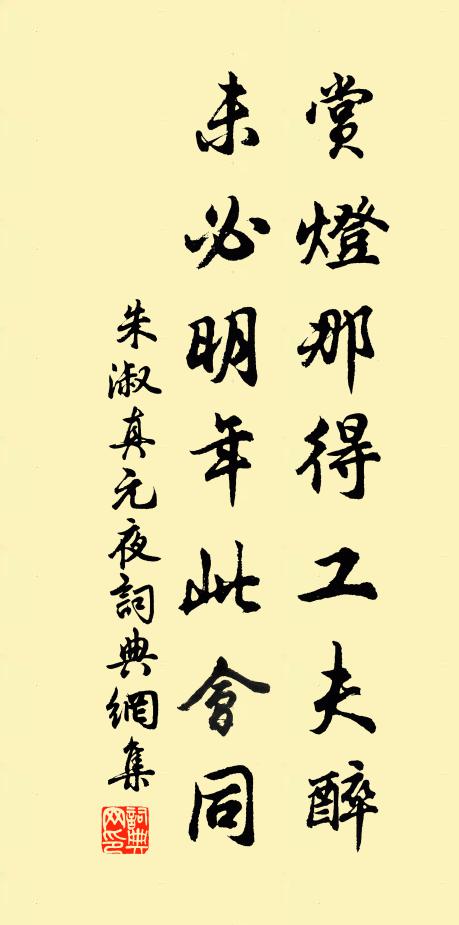 賞燈那得工夫醉
未必明年此會同
朱淑真元夜詞典網集
詞典网印